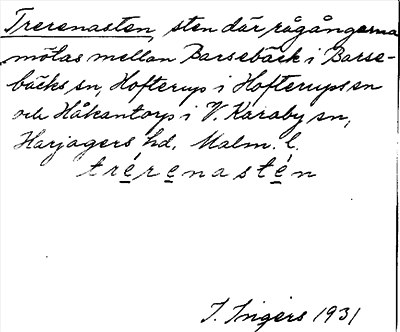 Trerenasten, sten där rågångarna
mötas mellan Barsebäck i Barse-
bäcks sn, Hofterup i Hofterups sn
och Håkantorp i V. Karaby sn,
Harjagers hd, Malm. l.
trérenastén
I. Ingers 1931